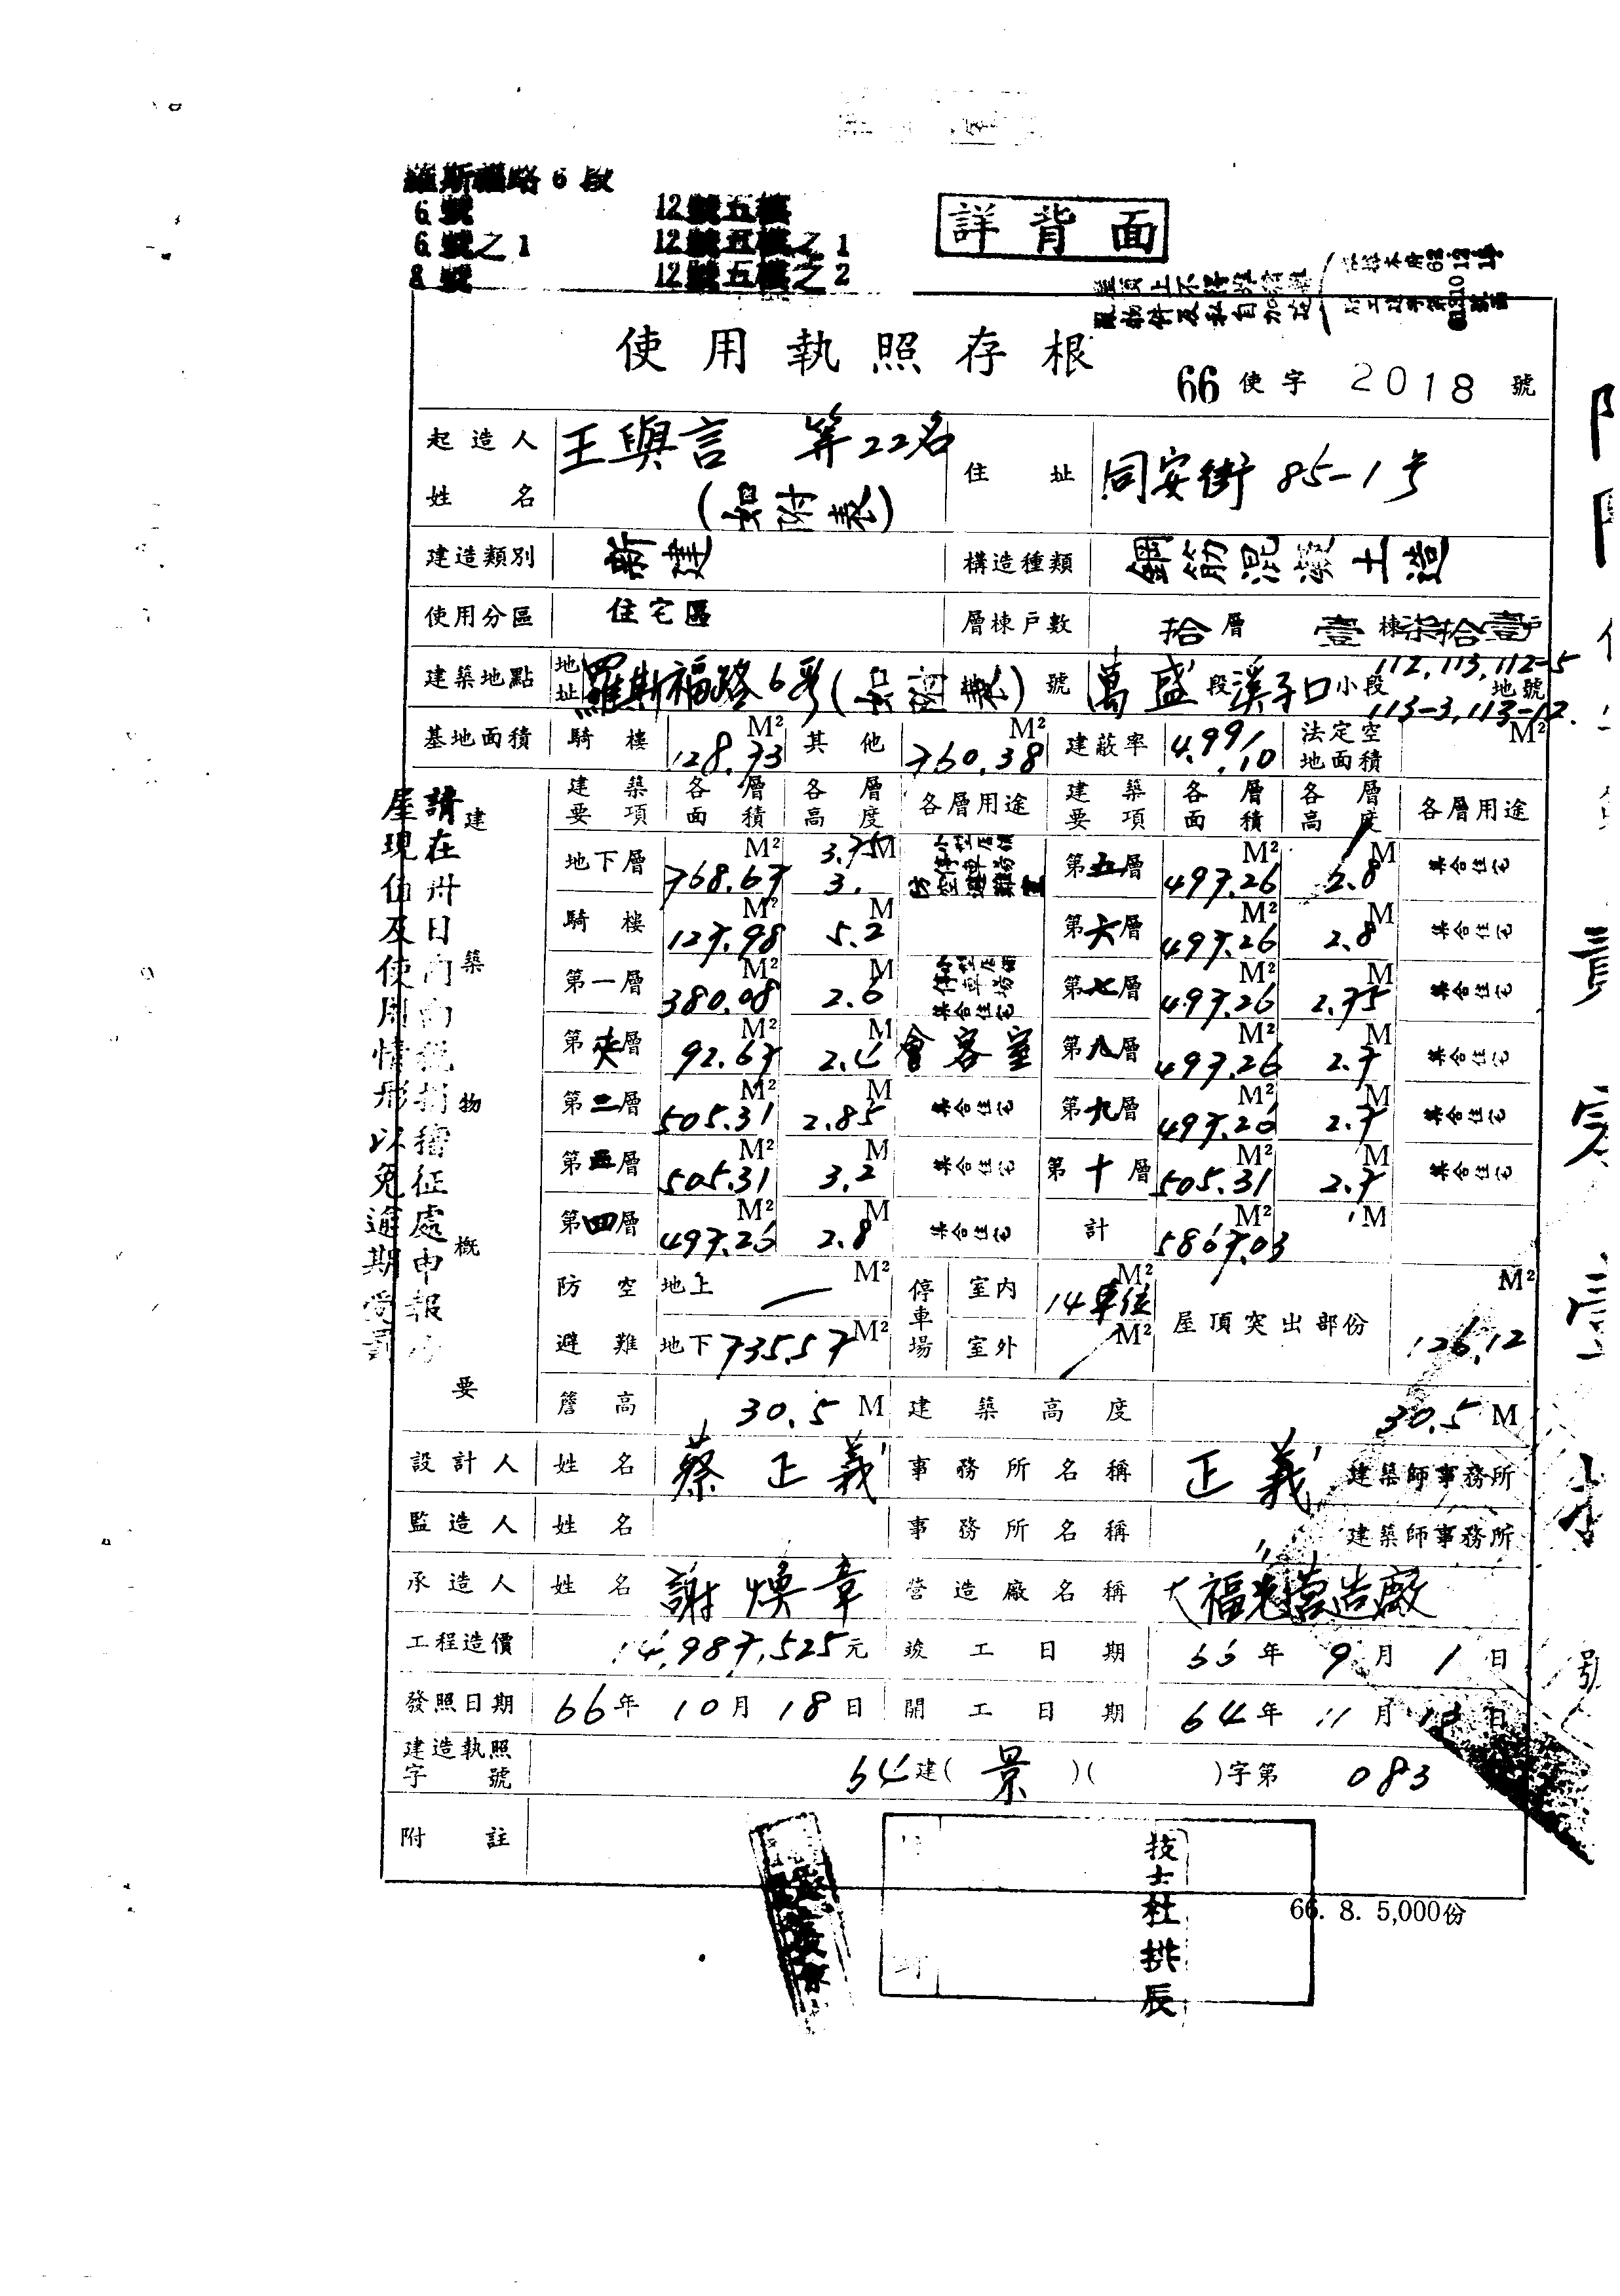 羅斯福路6段
6號 12號五樓
6號之1 12號五樓之1
8號 12號五樓之2
詳背面
使用執照存根
66使字2018號
起造人姓名 王與言 等22名 (如附表) 住址 同安街85-1号
建造類別 新建 構造種類 鋼筋混凝土造
使用分區 住宅區 層棟戶數 拾層 壹棟柒拾壹戶
建築地點 地址 羅斯福路6段(如附表)號 萬盛段溪子口小段 112,113,112-5 113-3,113-12 地號
基地面積 騎樓 128.73 M² 其他 760.38 M² 建蔽率 4.99/10 法定空地面積 M²
建築要項 各層面積 各層高度 各層用途 建築要項 各層面積 各層高度 各層用途
地下層 768.67 M² 3.75 3. M 第五層 497.26 M² 2.8 M 集合住宅
騎樓 127.98 M² 5.2 M 第六層 497.26 M² 2.8 M 集合住宅
第一層 380.08 M² 2.6 M 集合住宅 第七層 497.26 M² 2.75 M 集合住宅
第夾層 92.67 M² 2.4 M 會客室 第八層 497.26 M² 2.7 M 集合住宅
第二層 505.31 M² 2.85 M 集合住宅 第九層 497.26 M² 2.7 M 集合住宅
第三層 505.31 M² 3.2 M 集合住宅 第十層 505.31 M² 2.7 M 集合住宅
第四層 497.26 M² 2.8 M 集合住宅 計 5867.03 M² M
建築物概要
防空避難 地上 — M² 停車場 室內 14車位 M² 屋頂突出部份 126.12 M²
地下 735.57 M² 室外 M²
簷高 30.5 M 建築高度 30.5 M
設計人 姓名 蔡正義 事務所名稱 正義 建築師事務所
監造人 姓名 事務所名稱 〃 建築師事務所
承造人 姓名 謝煥章 營造廠名稱 大福光營造廠
工程造價 14,987,525元 竣工日期 66年9月1日
發照日期 66年10月18日 開工日期 64年11月
建造執照字號 64建(景)( )字第083
附註
請在卅日內向稅捐稽征處申報房
屋現值及使用情形以免逾期受罰
技士杜拱辰
66. 8. 5,000份